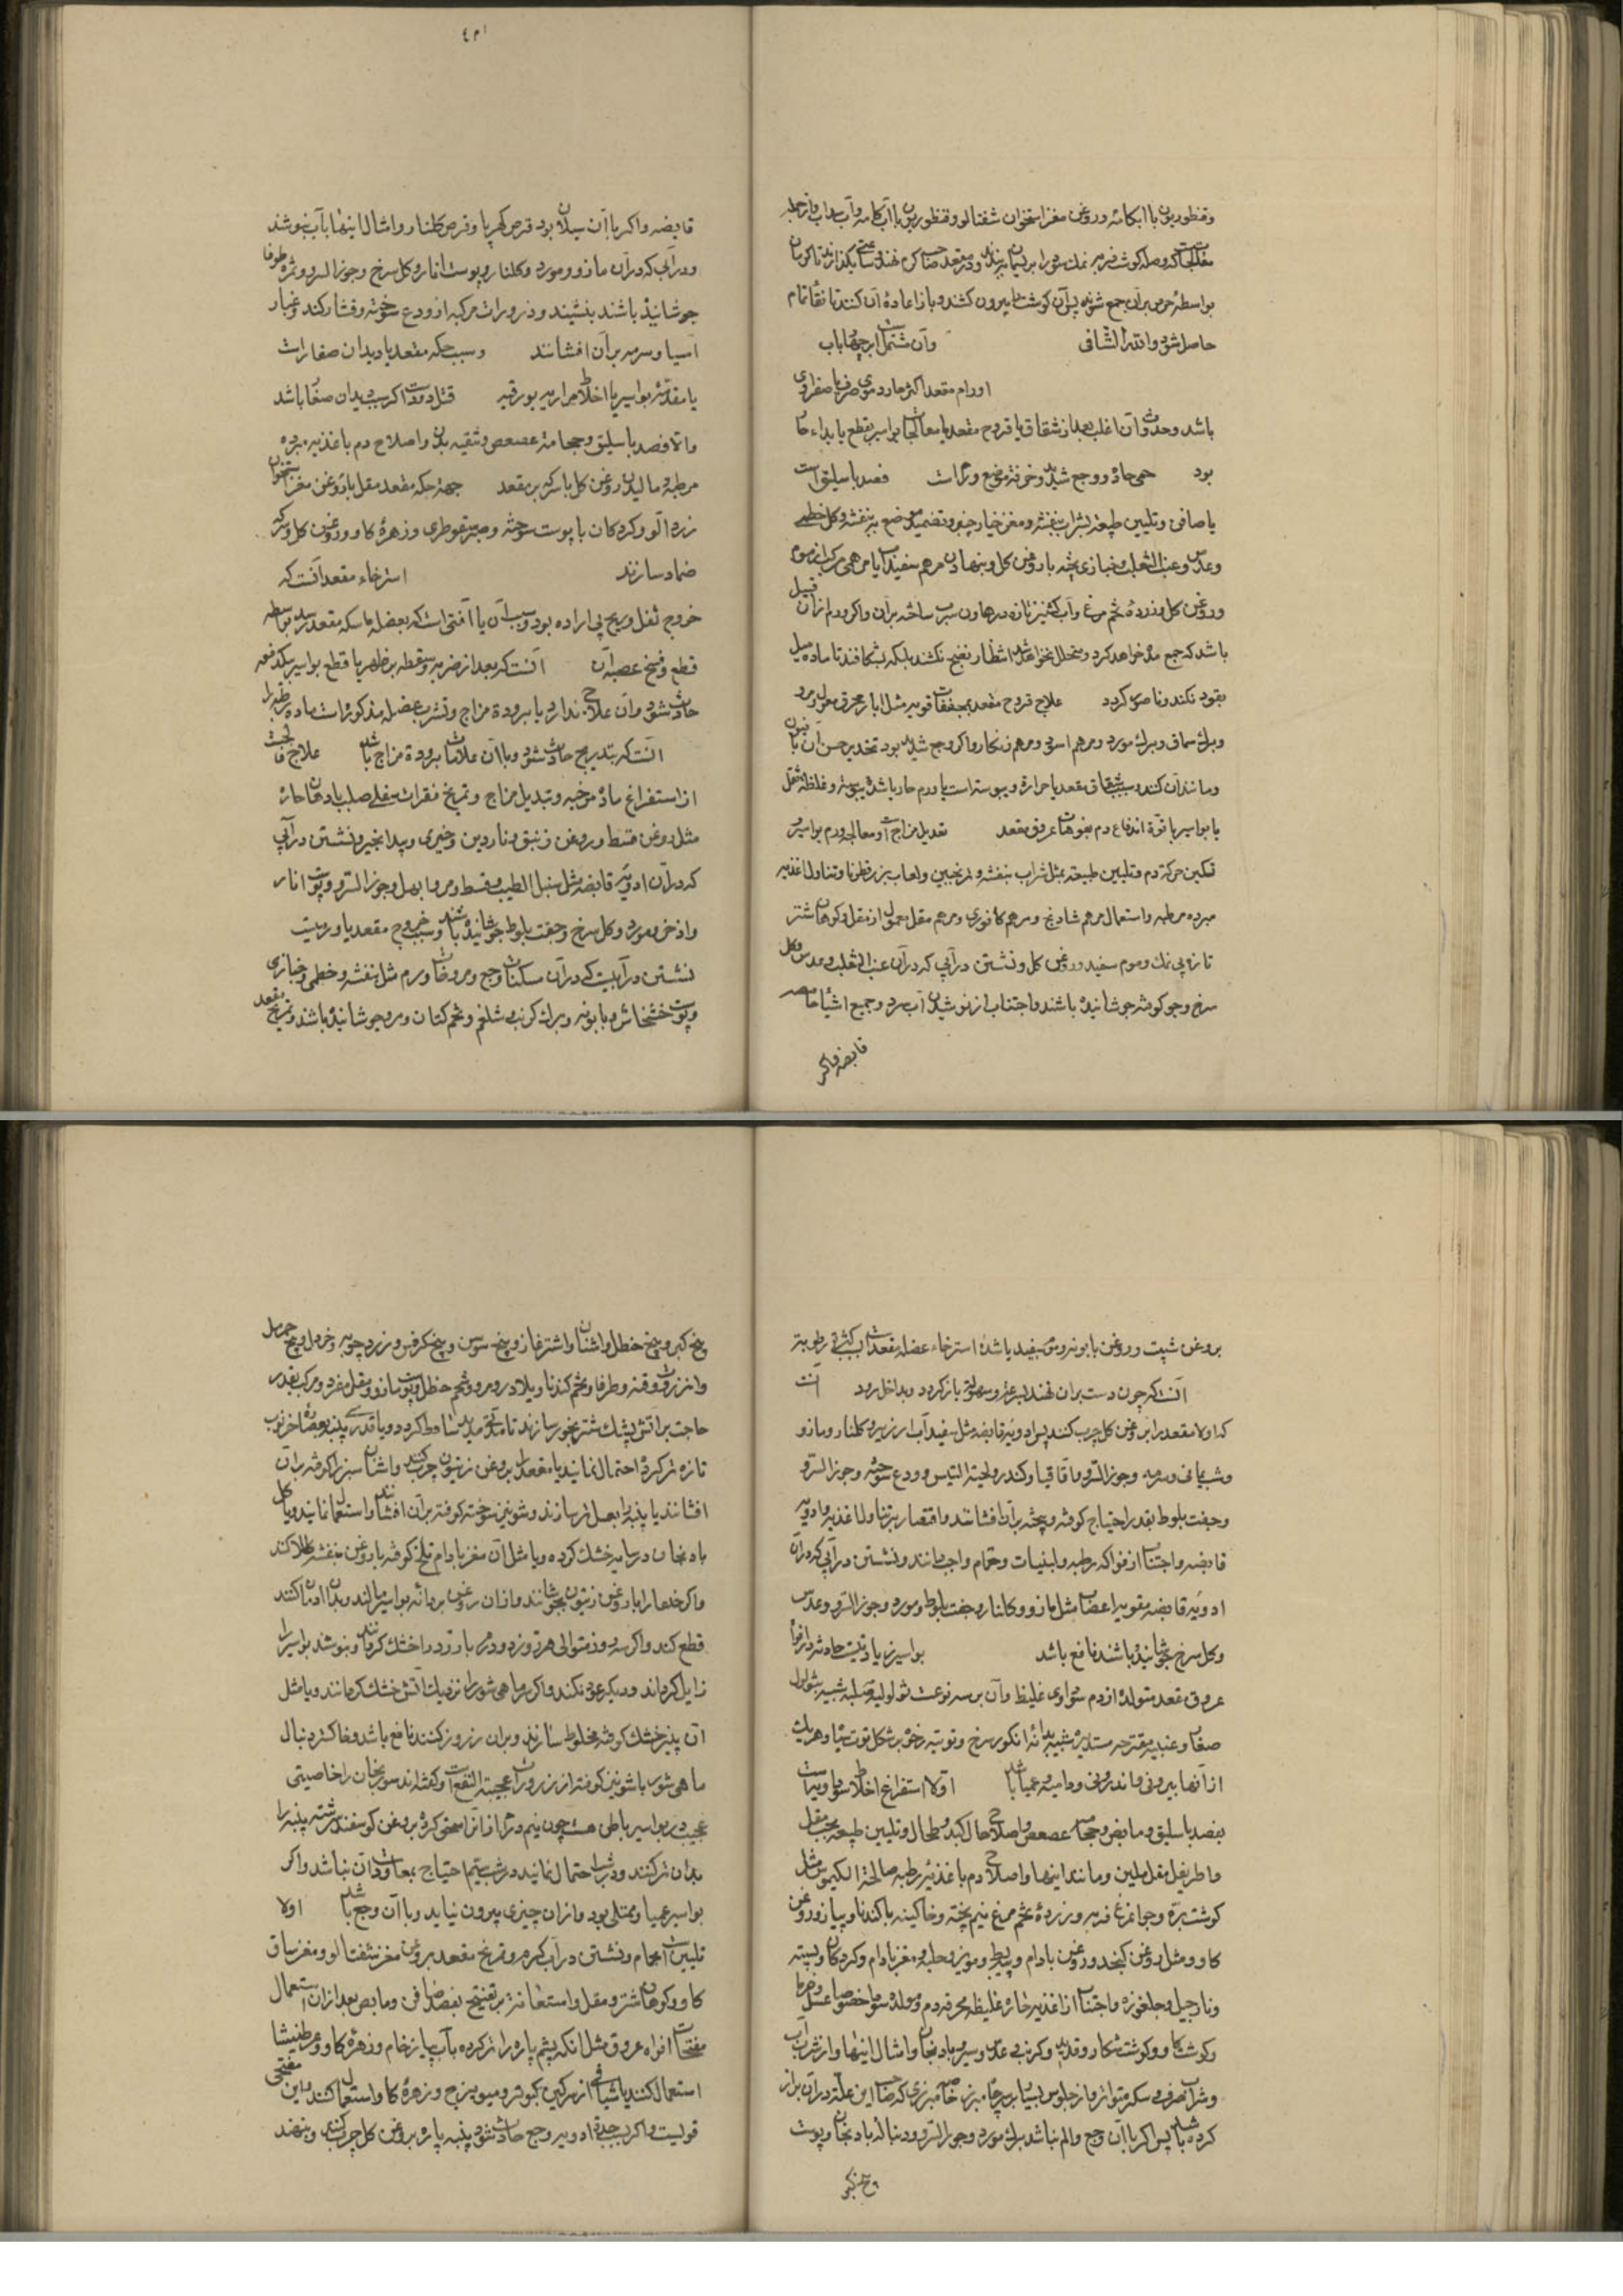 وقنطوریون با آبکامه و روغن مغز استخوان شفتالو و قنطوریون با آب کامه وآب سداب واز جمله
معالجات که وصله کوشت فربه نمک سود را بریسمان بندند ودر مقعد صاحب کرم نهند وساعتی بکذارند تا کرمان
بواسطه حرص بران جمع شوند پس آن کوشت را بیرون کشند وباز اعاده آن کنند تا نقاء تمام
حاصل شود والله الشافی وآن مشتمل بر چهار باب
اورام مقعد اکثر حار دموی صرف یا صفراوی
باشد وحدوث آن اغلب بعد از شقاق یا قروح مقعد یا معالجات بواسیر بقطع یا بداء حاد
بود حمی حاد ووجع شدید وحرقت موضع ورم است فصد باسلیق است
یا صافن وتلیین طبیعة بشراب بنفشه ومغز خیار چنبر وتضمید موضع به بنفشه وکل خطمی
وعدس وعنب الثعلب وخبازی پخته با روغن کل وبنهادن مرهم سفیداب یا مرهمی مرکب از موم
وروغن کل وزرده تخم مرغ وآب کشنیز تازه در هاون سرب ساخته بران واکر ورم ازان قبیل
باشد که جمع مده خواهد کرد ومتحلل نخواهد شد انتظار نضج نکشند بلکه بشکافند تا ماده میل
بغور نکند وناصور نکردد علاج قروح مقعد بمجففات قویه مثل ابار محرق مغسول ومرو
وبرک سماق وبرک مورد ومرهم اسرب ومرهم زنکار واکر وجع شدید بود تخدیر حس آن با فیون
ومانند آن کنند وسبب شقاق مقعد یا حرارة ویبوسة است یا ورم حار یا شدة یبوسة وغلظة ثفل
یا بواسیر یا قوة اندفاع دم بفوهات عروق مقعد تعدیل مزاج است ومعالجه ورم بواسیر و
تسکین حرکة دم وتلیین طبیعة بمثل شراب بنفشه وترنجبین ولعاب بزر قطونا وتناول اغذیه
مبرده مرطبه واستعمال مرهم شادنج ومرهم کافوری ومرهم مقل معمول از مقل وکوهان شتر
تازه بی نمک وموم سفید وروغن کل ونشستن در آبی که دران عنب الثعلب وعدس وکل
سرخ وجو کوفته جوشانیده باشند واجتناب از نوشیدن آب سرد وجمیع اشیاء حامضه
قابضه واکر
۴۰۱
قابضه واکر با آن سیلان بود قرص کهربا وقرص کلنار وامثال اینها بآب بنوشند
ودر آبی که دران مازو ومورد وکلنار وپوست انار وکل سرخ وجوز السرو وثمره طرفا
جوشانیده باشند بنشینند وذرورات مرکبه از ودع سوخته وفشار کند وغبار
آسیا وسرمه بران افشانند وسبب حکه مقعد یا دیدان صغار است
یا مقدمه بواسیر یا اخلاط مراریه بورقیه قتل دود است اکر سبب دیدان صغار باشد
والا فصد باسلیق وحجامة عصعص وتنقیه بدن واصلاح دم باغذیه مبرده
مرطبه ومالیدن روغن کل با سرکه بر مقعد جهة حکه مقعد مقل با روغن مغز استخوان
زردآلو وکردکان با پوست سوخته وصبر سقوطری وزهره کاو وروغن کل وسرکه
ضماد سازند استرخاء مقعد آنست که
خروج ثفل وریح بی اراده بود وسبب آن یا آفتی است که بعضله ماسکه مقعد رسد بواسطه
قطع وفسخ عصبه آن آنست که بعد از ضربه وسقطه بر ظهر یا قطع بواسیر یکدفعه
حادث شود وآن علاج ندارد یا برودة مزاج وتشرب عضله مذکوره است ماده رطبه را
آنست که بتدریج حادث شود وبا آن علامات برودة مزاج باشد علاج فالج است
از استفراغ ماده مرخیه وتبدیل مزاج وتمریخ فقرات سفلی صلب بادهان حاره
مثل روغن قسط وروغن زنبق وناردین وخیری وبیدانجیر ونشستن در آبی
که دران ادویه قابضه مثل سنبل الطیب وقسط ومر وابهل وجوز السرو وپوست انار
واذخر ومورد وکل سرخ وجفت بلوط جوشانیده باشند وسبب خروج مقعد یا ورمیست
نشستن در آبیست که دران مسکنات وجع ومرخیات ورم مثل بنفشه وخطمی وخبازی
وپوست خشخاش وبابونه وبرک کرنب وشلغم وتخم کتان ومرو جوشانیده باشند وتمریخ مقعد
بروغن شبت وروغن بابونه وموم سفید یا شدة استرخاء عضله مقعد است بسبب کثرة رطوبت
آنست که چون دست بران نهند بسرعة وسهولة باز کردد وبداخل رود آنست
که اولا مقعد را بروغن کل چرب کنند پس ادویه قابضه مثل سفیداب ارزیز وکلنار ومازو
وشب یمانی وسرمه وجوز السرو واقاقیا وکندر ولحیة التیس وودع سوخته وجوز السرو
وجفت بلوط بقدر احتیاج کوفته وبیخته بران افشانند واقتصار بر تناول اغذیه وادویه
قابضه واجتناب از فواکه رطبه ولبنیات وحمام واجب دانند ونشستن در آبی که دران
ادویه قابضه مقویه اعضا مثل مازو وکلنار وجفت بلوط ومورد وجوز السرو وعدس
وکل سرخ جوشانیده باشند نافع باشد بواسیر زیادتیست حادثه در افواه
عروق مقعد متولده از دم سوداوی غلیظ وآن بر سه نوعست ثؤلولیه صلبه شبیه بثؤلول
صغار وعنبیه مفترجه مستدیره شبیه بدانه انکور سرخ وتوتیه رخو بر شکل توت سیاه وهریک
از آنها بیرونی واندرونی ودامیه وعمیا باشد اولا استفراغ اخلاط سوداویه است
بفصد باسلیق ومابض وحجامة عصعص واصلاح حال کبد وطحال وتلیین طبیعة بحب مقل
واطریفل مقل ملین ومانند اینها واصلاح دم باغذیه رطبه صالحة الکیموس مثل
کوشت بره وجوانمرغ فربه وزرده تخم مرغ نیم پخته وخاکینه با کندنا وپیاز وروغن
کاو ومثل روغن کنجد وروغن بادام وپیه بط ومویز وحلبه ومغز بادام وکردکان وپسته
ونارجیل وجلغوزه واجتناب از اغذیه حاره غلیظه محرقه دم ومولده سودا خصوصا عسل وخرما
وکوشت کاو وکوشت شکار وقدید وکرنب وعدس وسیر وبادنجان وامثال اینها واز شراب
وشراب صرف وسکر متواتر واز جلوس بسیار بر جامه بزر خاصه مبرزی که صاحب این علة دران براز
کرده باشد پس اکر با آن وجع والم نباشد برک مورد وجوز السرو ودنباله بادنجان وپوست
وبیخ کبر
بیخ کبر وبیخ حنظل واشنان واشترغاز وبیخ سوس وبیخ کرفس وزردچوبه وخردل وبیخ حرمل
وانزروت وقنه وطرفا وتخم کندنا وبلادر ومرو وشحم حنظل وپوست مازو ومقل مفرد ومرکب بقدر
حاجت بر آتش پشک شتر بخور سازند تا بتحقیق ساقط کردد ویا قدری پنبه بعصاره خرنوب
تازه تر کرده احتمال نمایند یا مقعد را بروغن زیتون چرب کنند واشنان سبز را کوفته بران
افشانند یا پنبه را بعسل تر سازند وشونیز سوخته کوفته بران افشانند واستعمال نمایند ویا کل
بادنجان در سایه خشک کرده وبا مثل آن مغز بادام تلخ کوفته با روغن بنفشه طلا کنند
واکر خنفسا را با روغن زیتون بجوشانند وازان روغن بر دانه بواسیر مالند وبدان ادمان کنند
قطع کند واکر سه روز متوالی هر روز دو درم باروز در آتش خشک کرده بنوشند بواسیر را
زایل کرداند ودیکر عود نکند واکر ماهی شور را نزدیک آتش خشک کردانند وبا مثل
آن پنیر خشک کوفته مخلوط سازند وبران زروز کنند نافع باشد وخاکستر دنبال
ماهی شور با شونیز کوفته از زرورات عجیبة النفع است وکفته اند سورنجان را خاصیتی
عجیب در بواسیر باطن هست چون نیم درم ازان سحق کرده بروغن کوسفند سرشته پنبه را
بدان تر کنند ودر شب احتمال نمایند در شب سیم احتیاج بمعاودة آن نباشد واکر
بواسیر عمیا وممتلی بود وازان چیزی بیرون نیاید وبا آن وجع باشد اولا
تلیین است بحمام ونشستن در آب کرم وتمریخ مقعد بروغن مغز شفتالو ومغز ساق
کاو وکوهان شتر ومقل واستعانت بر تفتیح بفصد صافن ومابض بعد ازان استعمال
مفتحات افواه عروق مثل آنکه پشم پاره را تر کرده بآب پیاز خام وزهره کاو وعرطنیشا
استعمال کنند یا شیافی از سرکین کبوتر ومیویزج وزهره کاو استعمال کنند واین مفتحی
قویست واکر بسبب حدة ادویه وجع حادث شود پنبه پاره بروغن کل چرب کنند وبنهند